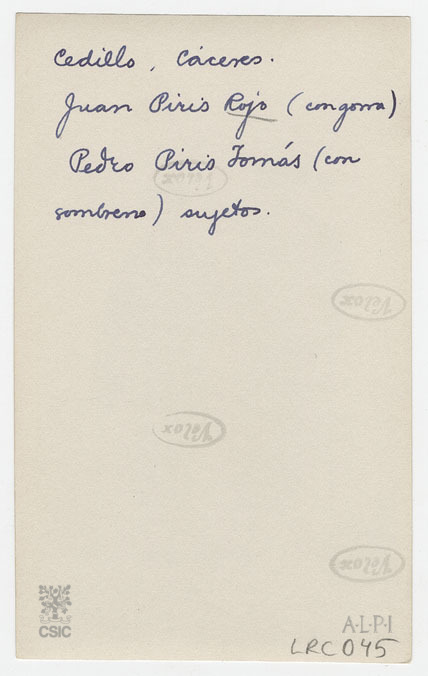 Cedillo, Cáceres.
Juan Piris Rojo (con gorra)
Pedro Piris Tomás (con
sombrero) sujetos.
Velox
Velox
Velox
Velox
CSIC
A·L·P·I
LRC045